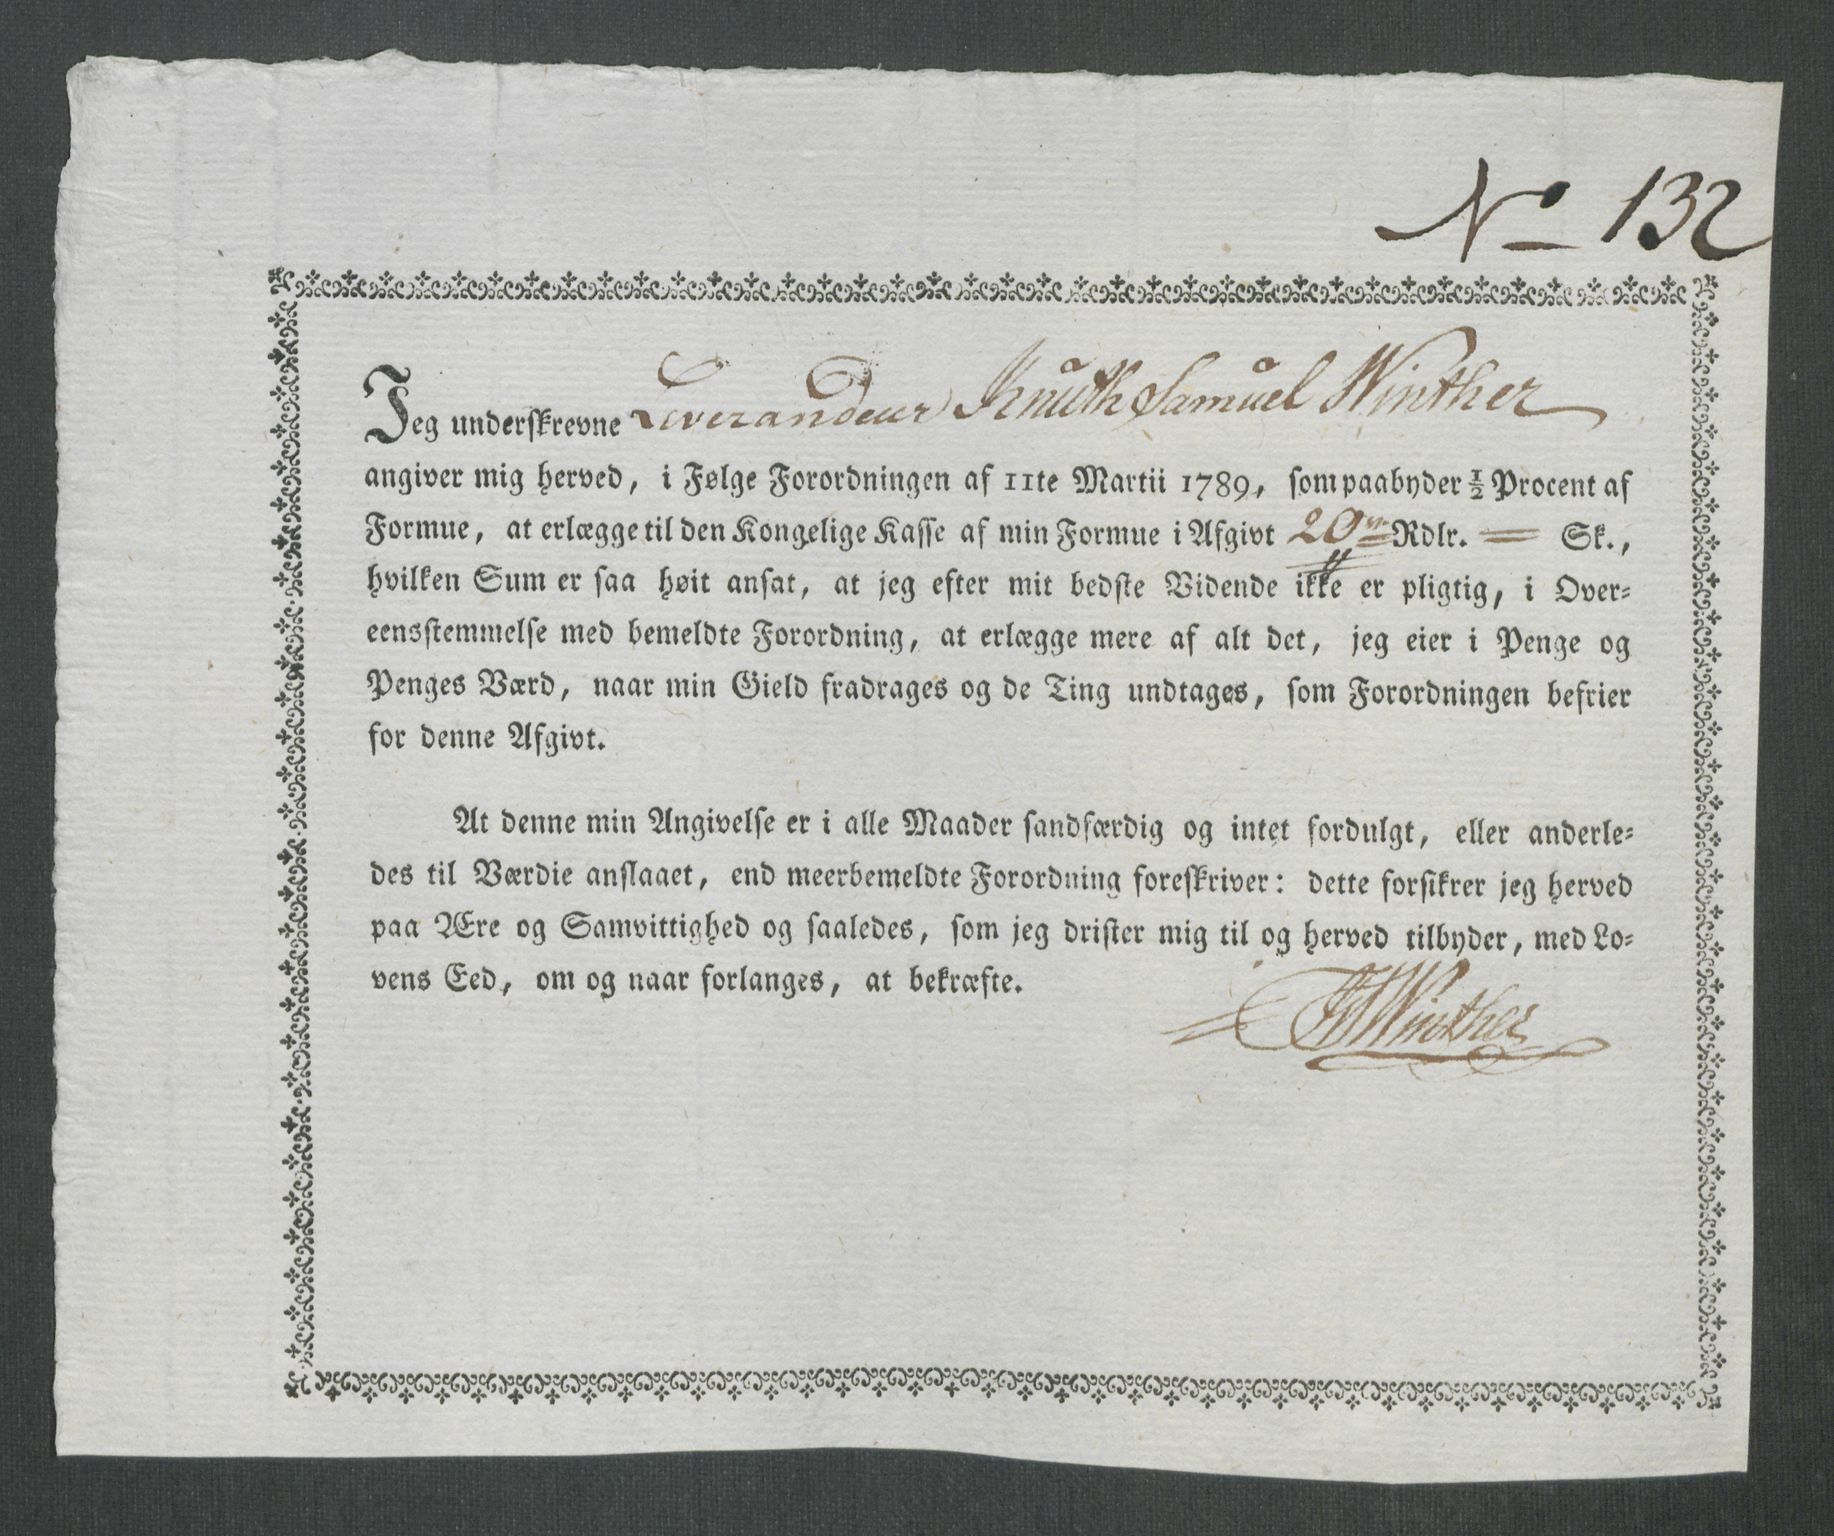 No 132
Jeg underskrevne Leverandeur Knuth Samuel Winther
angiver mig herved, i Følge Forordningen af 11te Martii 1789, som paabyder ½ Procent af
Formue, at erlægge til den Kongelige Kasse af min Formue i Afgivt 20 Rdlr. = Sk.,
hvilken Sum er saa høit ansat, at jeg efter mit bedste Vidende ikke er pligtig, i Over-
eensstemmelse med bemeldte Forordning, at erlægge mere af alt det, jeg eier i Penge og
Penges Værd, naar min Gield fradrages og de Ting undtages, som Forordningen befrier
for denne Afgivt.
At denne min Angivelse er i alle Maader sandfærdig og intet fordulgt, eller anderle-
des til Værdie anslaaet, end meerbemeldte Forordning foreskriver: dette forsikrer jeg herved
paa Ære og Samvittighed og saaledes, som jeg drister mig til og herved tilbyder, med Lo-
vens Eed, om og naar forlanges, at bekræfte.
KSWinther